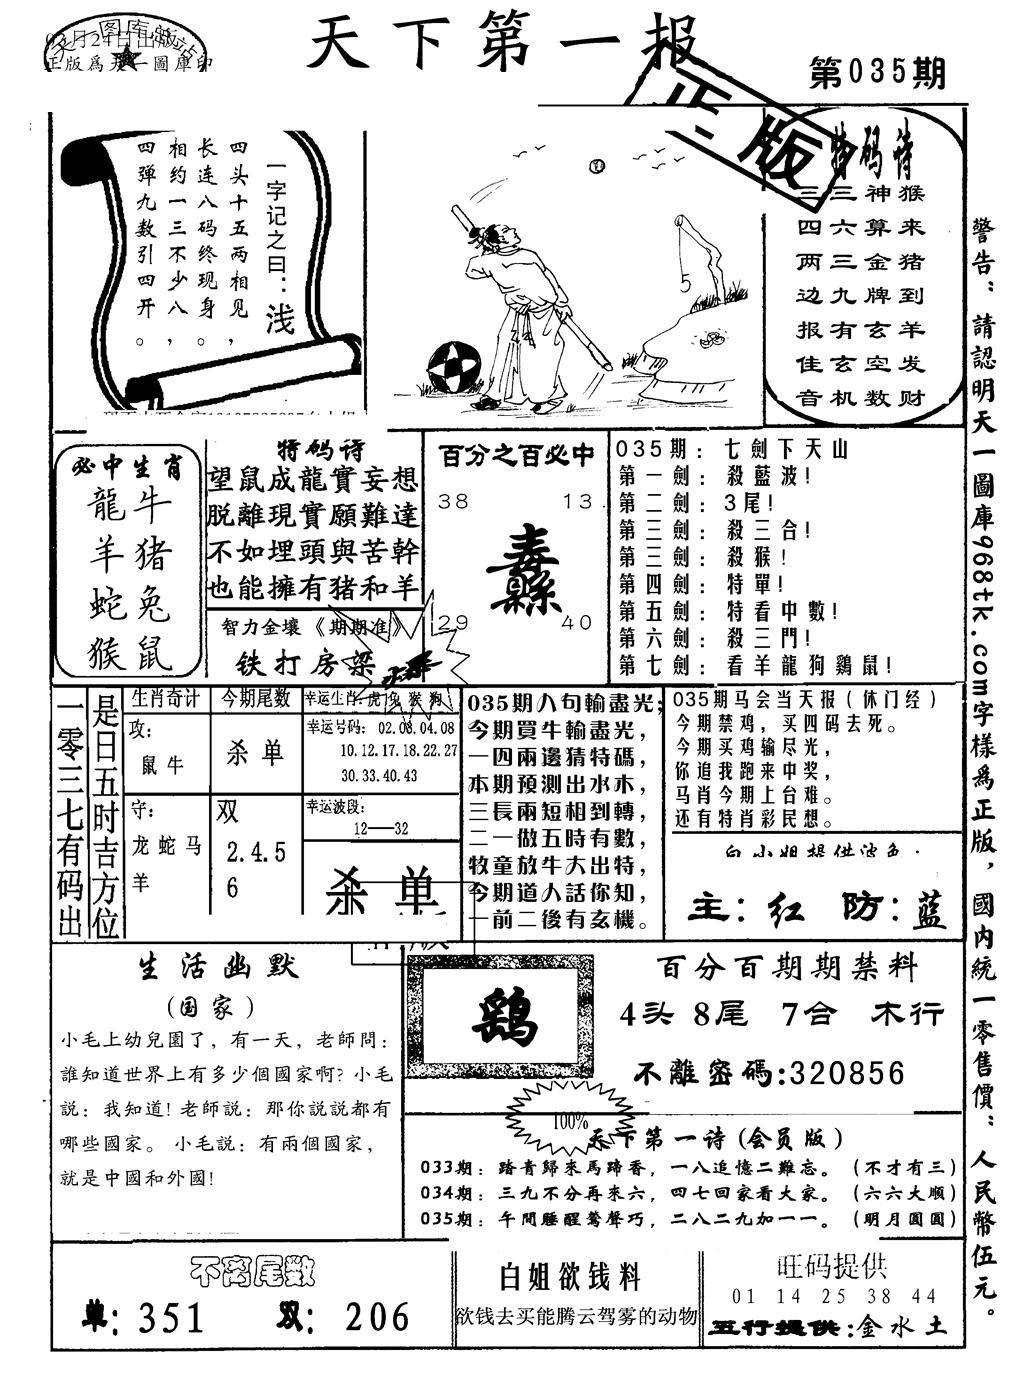 天下第一报
第035期
月24日出版
正版爲天一圖庫印
正版
一字记之曰：浅
四头十五两相见，
长连八码终现身。
相约一三不少八，
四弹九数引四开。
特码诗
三三神猴
四六算来
两三金猪
边九牌到
报有玄羊
佳玄空发
音机数财
必中生肖
龍牛
羊猪
蛇兔
猴鼠
特码诗
望鼠成龍實妄想
脱離現實願難達
不如埋頭與苦幹
也能擁有猪和羊
智力金壤《期期准》
铁打房梁
百分之百必中
38 13.
纛
29 40
035期：七劍下天山
第一劍：殺藍波!
第二劍：3尾!
第三劍：殺三合!
第三劍：殺猴!
第四劍：特單!
第五劍：特看中數!
第六劍：殺三門!
第七劍：看羊龍狗鷄鼠!
一零三七有码出
是日五时吉方位
生肖奇计 今期尾数
攻：
鼠牛
杀单
守：
龙蛇马
羊
双
2.4.5
6
幸运生肖：虎兔猴狗
幸运号码：02.03.04.08
10.12.17.18.22.27
30.33.40.43
幸运波段：
12—32
杀单
035期八句輸盡光；
今期買牛輸盡光，
一四兩邊猜特碼，
本期預測出水木，
三長兩短相到轉，
二一做五時有數，
牧童放牛大出特，
今期道人話你知，
一前二後有玄機。
035期马会当天报（休门经）
今期禁鸡，买四码去死。
今期买鸡输尽光，
你追我跑来中奖，
马肖今期上台难。
还有特肖彩民想。
白小姐提供波色：
主：红 防：蓝
生活幽默
（国家）
小毛上幼兒園了，有一天，老師問：
誰知道世界上有多少個國家啊? 小毛
説：我知道! 老師説：那你説説都有
哪些國家。 小毛説：有兩個國家，
就是中國和外國!
鷄
百分百期期禁料
4头 8尾 7合 木行
不離密碼：320856
100%
天下第一诗（会员版）
033期：踏青歸來馬蹄香，一八追憶二難忘。（不才有三）
034期：三九不分再來六，四七回家看大家。（六六大順）
035期：午間睡醒鶯聲巧，二八二九加一一。（明月圓圓）
不离尾数
单：351 双：206
白姐欲钱料
欲钱去买能腾云驾雾的动物
旺码提供
01 14 25 38 44
五行提供：金水土
警告：請認明天一圖庫968tk.com字樣爲正版，國内統一零售價：人民幣伍元。